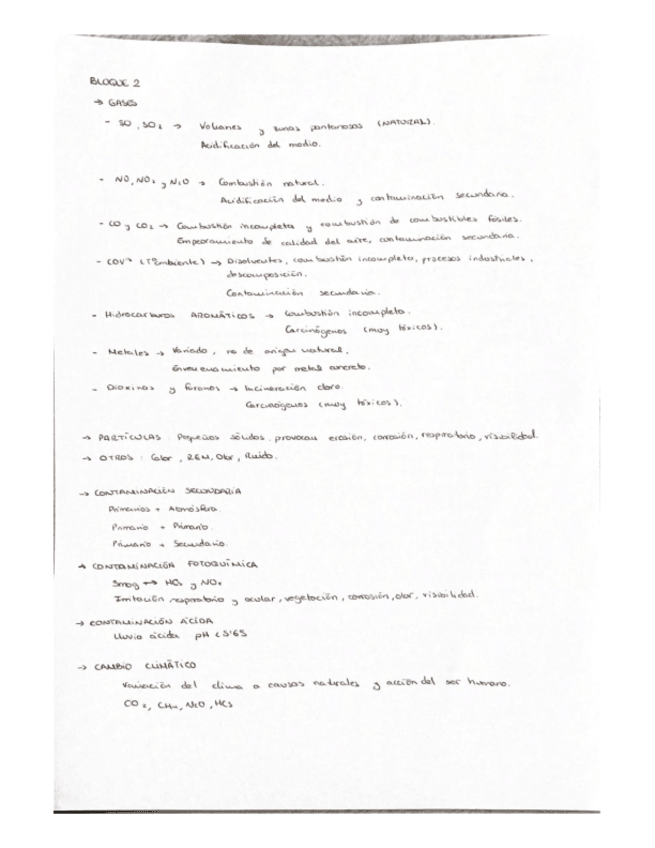 BLOQUE 2
→ GASES
- SO, SO₂ → Volcanes y zonas pantanosas (NATURAL).
Acidificación del medio.
- NO, NO₂ y N₂O → Combustión natural.
Acidificación del medio y contaminación secundaria.
- CO y CO₂ → Combustión incompleta y combustión de combustibles fósiles.
Empeoramiento de calidad del aire, contaminación secundaria.
- COVs (TªAmbiente) → Disolventes, combustión incompleta, procesos industriales,
descomposición.
Contaminación secundaria.
- Hidrocarburos AROMÁTICOS → Combustión incompleta.
Carcinógenos (muy tóxicos).
- Metales → Variado, no de origen natural.
Envenenamiento por metal concreto.
- Dioxinas y furanos → Incineración cloro.
Carcinógenos (muy tóxicos).
→ PARTÍCULAS: Pequeños sólidos, provocan erosión, corrosión, respiratorio, visibilidad.
→ OTROS: Calor, REM, Olor, Ruido.
→ CONTAMINACIÓN SECUNDARIA
Primarios + Atmósfera.
Primario + Primario.
Primario + Secundario.
→ CONTAMINACIÓN FOTOQUÍMICA
Smog ↔ HCs y NOx
Irritación respiratorio y ocular, vegetación, corrosión, olor, visibilidad.
→ CONTAMINACIÓN ÁCIDA
Lluvia ácida pH <5'65
→ CAMBIO CLIMÁTICO
Variación del clima a causas naturales y acción del ser humano.
CO₂, CH₄, N₂O, HCs